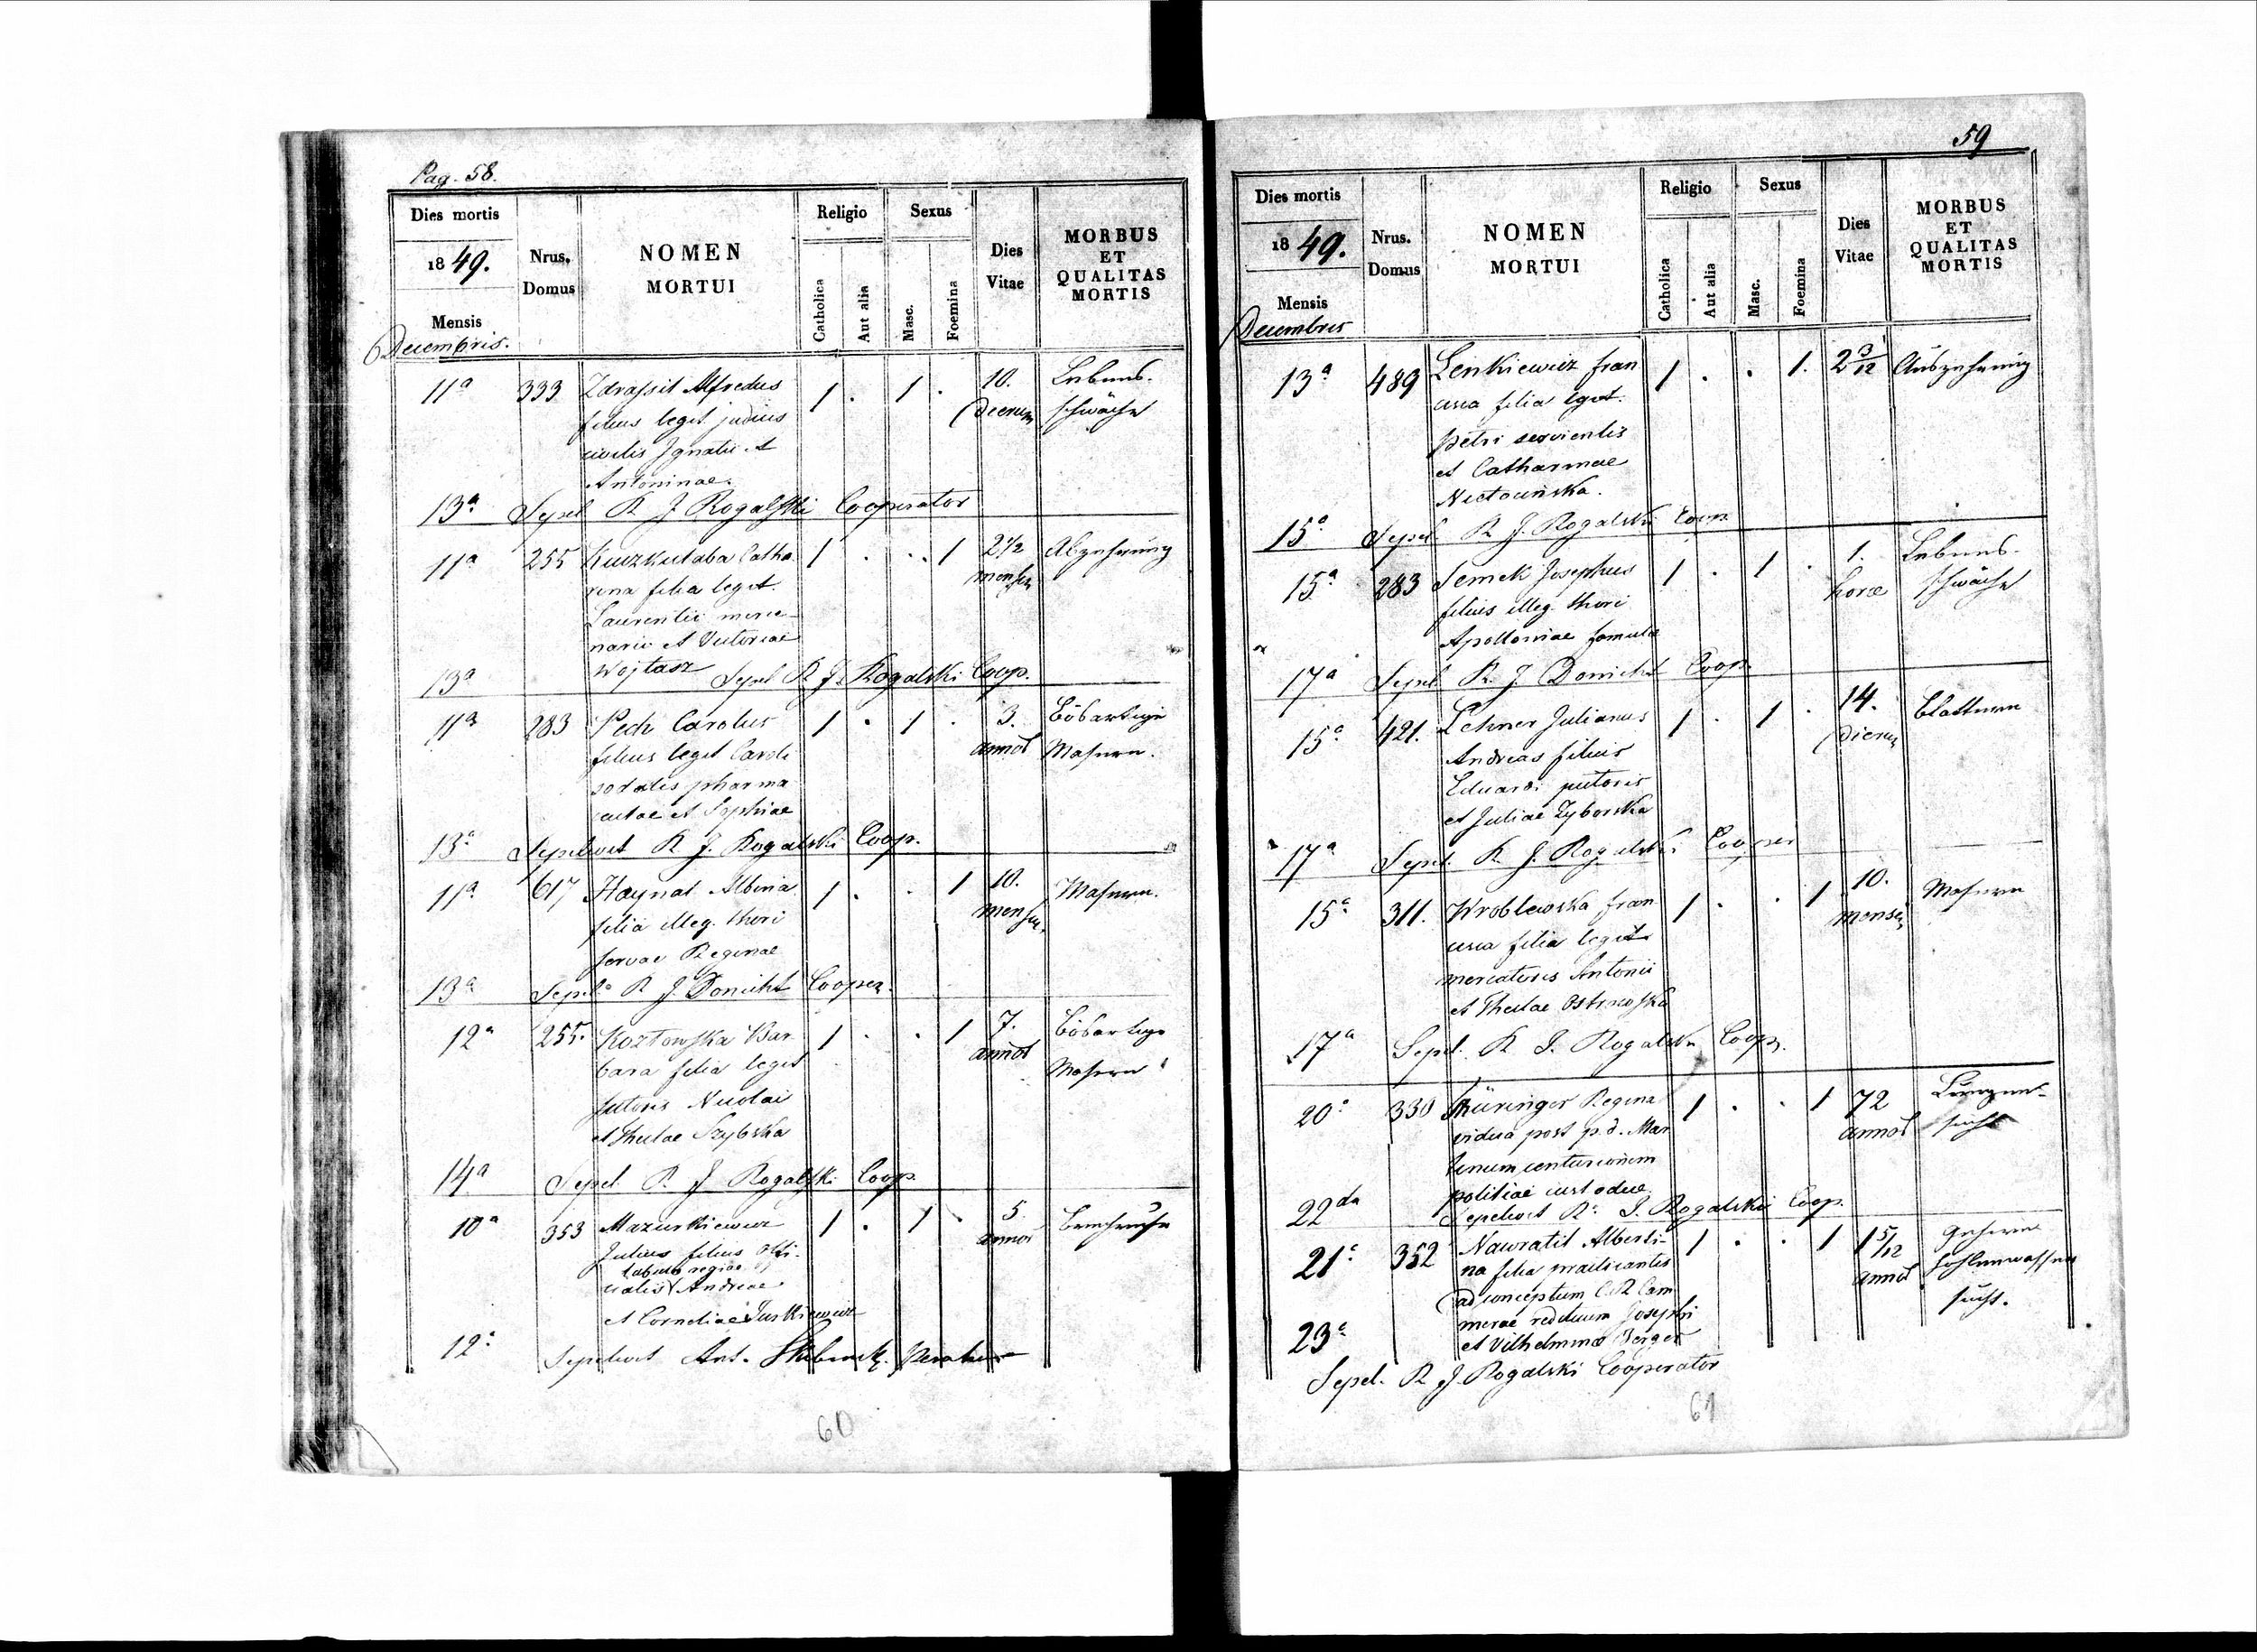 Pag. 58.
Dies mortis
1849.
Mensis
Decembris.
Nrus.
Domus
NOMEN
MORTUI
Religio
Catholica
Aut alia
Sexus
Masc.
Foemina
Dies
Vitae
MORBUS
ET
QUALITAS
MORTIS
11a 333 Zdrassil Alfredus 1 . 1 . 10. Lebens-
filius legit. judicis dierum schwäche
civilis Ignatii et
Antoninae
13a Sepel R J Rogalski Cooperator
11a 255 Catha 1 . . 1 2 1/2 Abzehrung
rina filia legit. mensium
Laurentii merce
narii et Victoriae
Wojtasz Sepel R J. Rogalski Coop.
13a
11a 283 Pech Carolus 1 . 1 . 3. Bösartige
filius legit Caroli annor Masern.
sodalis pharma
ceutae et Sophiae
13a Sepelivit R J. Rogalski Coop.
11a 617 Haynal Albina 1 . . 1 10. Masern.
filia illeg. thori mensium
servae Reginae
13a Sepel. R J. Donicht Cooper.
12a 255. Kozłowska Bar 1 . . 1 7. Bösartige
bara filia legit annor Masern
sutoris Nicolai
et Theclae Szybska
14a Sepel. R J Rogalski Coop.
10a 353 Mazurkiewicz 1 . 1 . 5. 
Julius filius offi- annor
tabulae regiae
cialis Andreae
et Corneliae Turkiewicz
12a Sepelivit Ant.
60
59
Dies mortis
1849.
Mensis
Decembris
Nrus.
Domus
NOMEN
MORTUI
Religio
Catholica
Aut alia
Sexus
Masc.
Foemina
Dies
Vitae
MORBUS
ET
QUALITAS
MORTIS
13a 489 Lenkiewicz Fran 1 . . 1. 2 3/12 Auszehrung
cisca filia lgit.
Petri servientis
et Catharinae
15a Sepel R J. Rogalski Coop.
15a 283 Semek Josephus 1 . 1 . 1. Lebens-
filius illeg. thori horae schwäche
Apolloniae famulae
17a Sepel R. J. Donicht Coop.
15a 421. Lehner Julianus 1 . 1 . 14. Blattern
Andreas filius dierum
Eduardi pictoris
et Juliae Zyborska
17a Sepel. R. J. Rogalski Cooper
15a 311. Wroblewska Fran 1 . . 1 10. Masern
cisca filia legit mensium
mercatoris Antonii
et Theclae Ostrowska
17a Sepel. R J. Rogalski Coop.
20a 330 Thüringer Regina 1 . . 1 72 Lungen-
vidua post p. d. Mar annor sucht
tinum centurionem
politiae custodiae
22da Sepelivit R. J. Rogalski Coop.
21a 352 Nawratil Alberti- 1 . . 1 1 5/12 Gehirn
na filia practicantis annor höhlenwasser
ad conceptum C. R. Cam sucht.
merae redituum Josephi
23a et Vilhelmina Berger
Sepel. R J. Rogalski Cooperator
61